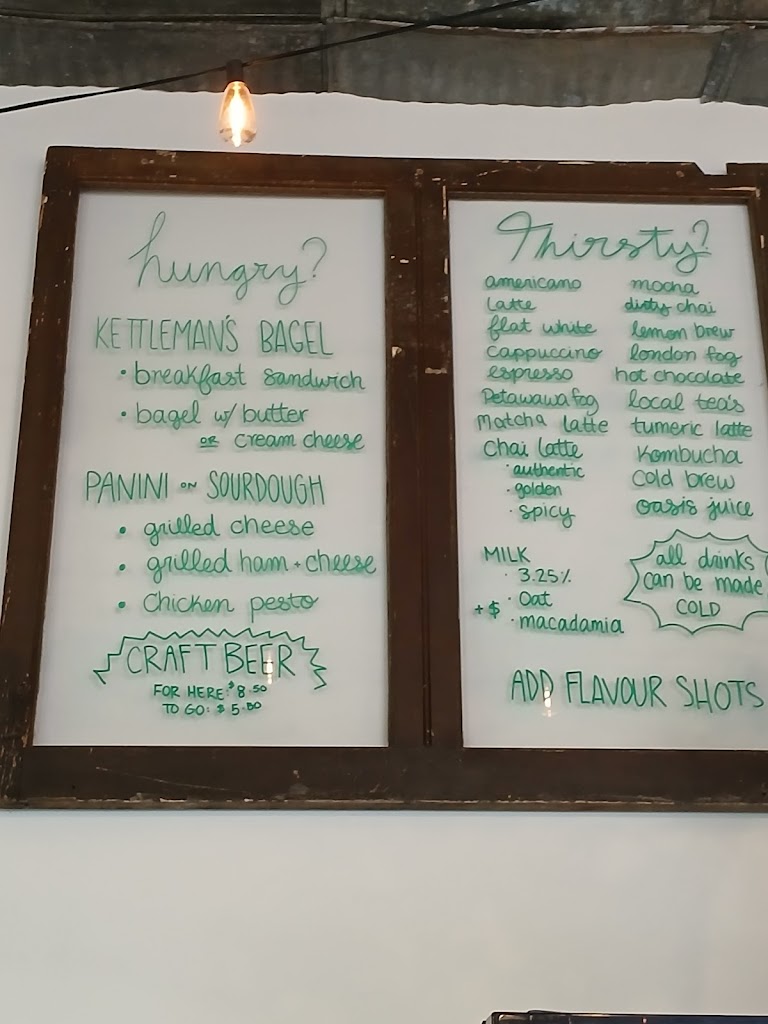 hungry?
KETTLEMAN'S BAGEL
• breakfast sandwich
• bagel w/ butter
OR cream cheese
PANINI ON SOURDOUGH
• grilled cheese
• grilled ham + cheese
• chicken pesto
CRAFT BEER
FOR HERE: $8.50
TO GO: $5.50
Thirsty?
americano
latte
flat white
cappuccino
espresso
Petawawa fog
Matcha latte
Chai latte
• authentic
• golden
• spicy
mocha
dirty chai
lemon brew
london fog
hot chocolate
local tea's
tumeric latte
Kombucha
cold brew
oasis juice
MILK
• 3.25%
• Oat
+$ • macadamia
all drinks
can be made
COLD
ADD FLAVOUR SHOTS